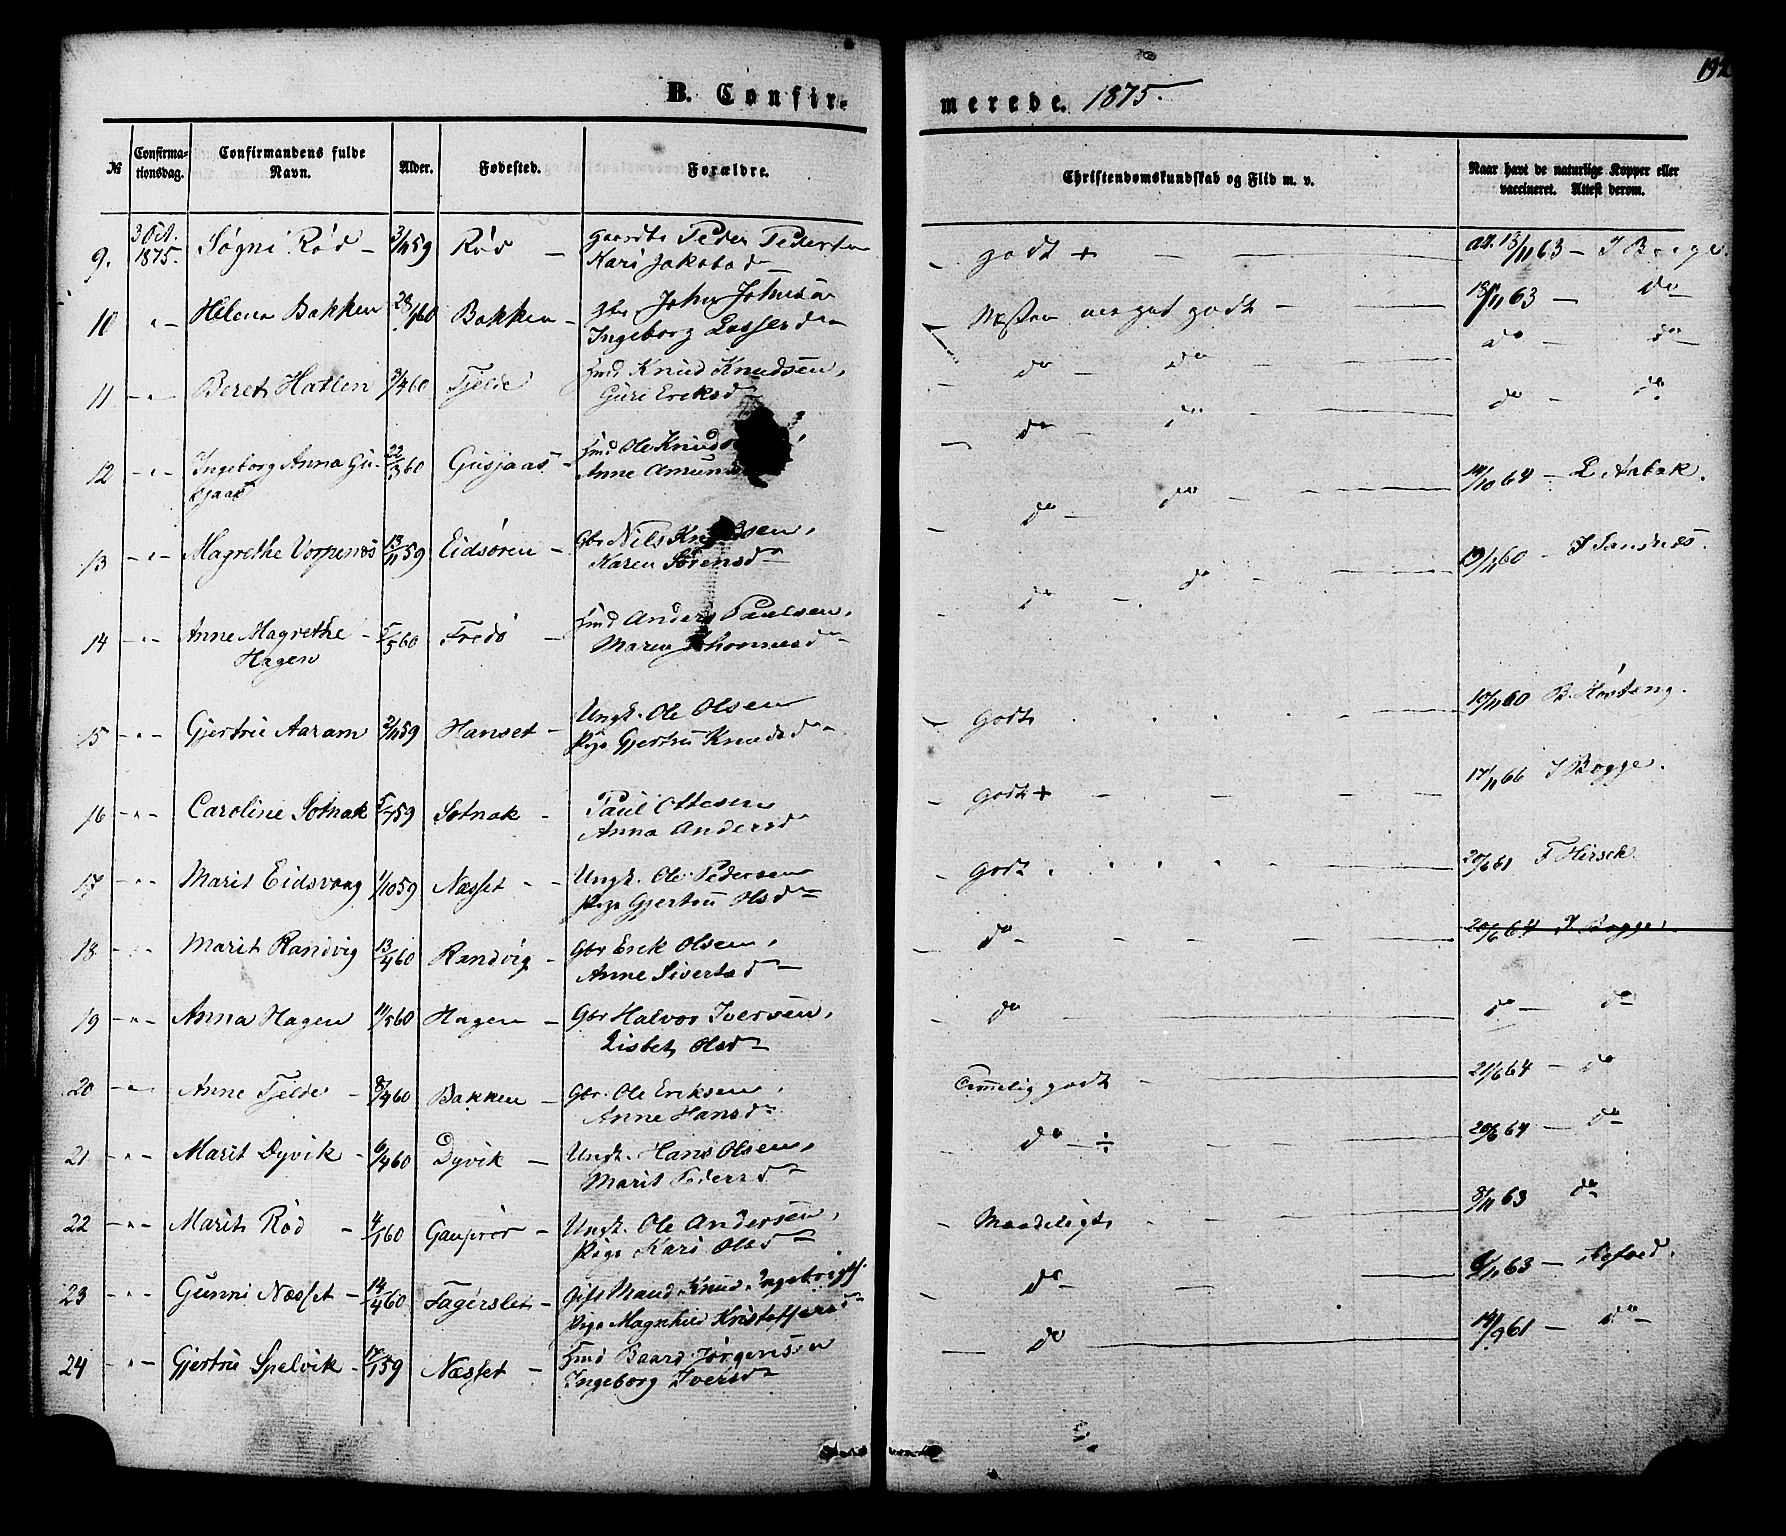 B. Confir-
merede. 1875.
192
№
Confirma-
tionsdag.
Confirmandens fulde
Navn.
Alder.
Fødested.
Forældre.
Christendomskundskab og Flid m. v.
Naar havt de naturlige Kopper eller
vaccineret. Attest derom.
9. 3 Oct. 1875. Søgni Rød – 3/11 59 Rød – Gaardbr Peder Pedersen
Kari Jakobsd – godt + – at. 13/11 63 – J Bogge.
10 " – Helena Bakken 28/1 60 Bakken – Gbr. John Johnsen
Ingeborg Lassesd – Næsten meget godt – 18/11 63 – do –
11 – " – Beret Hatlen 3/4 60 Tjelde Hmd Knud Knudsen,
Guri Eriksd – do do – do – do –
12 – " – Ingeborg Anna Gu- 22/3 60 Gusjaas – Hmd Ole Knuds
sjaas Anne Amun – do – do – do do
13 – " – Magrethe Vorpenæs 13/11 59 Eidsøren – Gbr Nils Knudsen,
Karen Sørensd – do – do – 14/10 64 – L Aabak.
14 – " – Anne Magrethe – 5/5 60 Fredø – Hmd Anders Paulsen,
Hagen Maren Thomasd – do – do – 19/11 60 – J Sandnæs.
15 – " – Gjertru Aaram 2/11 59 Hanset – Ungk. Ole Olsen
Pige Gjertru Knudsd – Godt 10/11 60 B. Høsteng.
16 – " – Caroline Sotnak 5/7 59 Sotnak – Paul Ottesen
Anna Andersd – godt + – 17/11 66 J Bogge.
17 – " – Marit Eidsvaag 1/10 59 Næsset – Ungk. Ole Pedersen
Pige Gjertru Olsd – godt. 20/6 61 F Hirsch.
18 – " – Marit Randvig 13/4 60 Randvig – Gbr Erik Olsen,
Anne Sivertsd – do – 20/6 64 J Bogge.
19 – " – Anna Hagen 11/5 60 Hagen – Gbr Halvor Iversen,
Lisbet Olsd – do do – do
20 – " – Anne Tjelde – 8/4 60 Bakken – Gbr. Ole Eriksen,
Anne Hansd – Temmelig godt – 21/6 64 – do
21 – " – Marit Dyvik – 6/4 60 Dyvik – Ungk. Hans Olsen,
Marit Pedersd – do – ÷ 20/6 64 – do
22 – " – Marit Rød – 4/1 60 Gauprør – Ungk. Ole Andersen,
Pige Kari Olsd – Maadeligt 8/11 63 do
23 – " – Gunni Næsset – 14/4 60 Fagerslet – Gift Mand Knud Ingebrigts.
Pige Magnhild Kristoffersd – do – 6/11 63 –
24 – " – Gjertru Spelvik – 17/1 59 Næsset – Hmd Baard Jørgensen
Ingeborg Iversd – do – 14/9 61 – do –